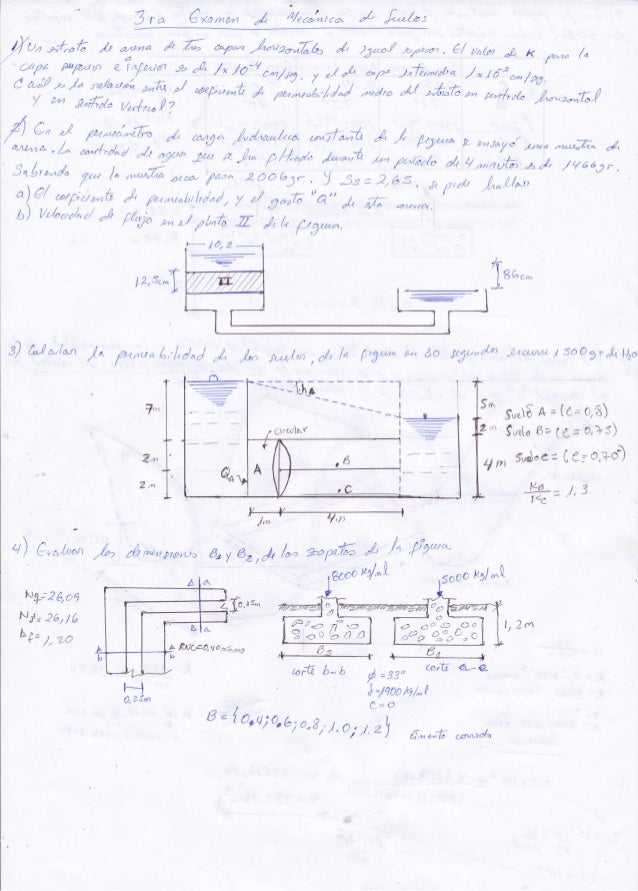 3ra Examen de Mecánica de Suelos
1) Un estrato de arena de Tres capas horizontales de igual espesor. El valor de K para la
capa superior e inferior es de 1x10⁻⁴ cm/seg. y el de capa intermedia 1x10⁻² cm/seg.
Cuál es la relación entre el coeficiente de permeabilidad medio del estrato en sentido horizontal
y en sentido Vertical?
2) En el permeámetro de carga hidraulica constante de la figura se ensayó una muestra de
arena. La cantidad de agua que se ha filtrado durante un período de 4 minutos es de 1466gr.
Sabiendo que la muestra seca pesa 2006gr. y Ss=2,65. se pide hallar
a) El coeficiente de permeabilidad, y el gasto "Q" de esta arena.
b) Velocidad de flujo en el punto II de la figura.
10,2
12,5cm
II
86cm
3) Calcular la permeabilidad de los suelos, de la figura en 30 segundos escurre 1500gr de H2O
7m
2m
2m
hA
circular
QA
A
.B
.C
1m
4m
5m
2m
4m
Suelo A = (e=0,8)
Suelo B= (e=0,75)
Suelo C= (e=0,70)
KB/KC = 1,3
4) Evaluar las dimensiones B1 y B2, de las zapatas de la figura.
Nq=26,09
Nγ=26,16
Df= 1,20
a
a
b
b
0,25m
0,25m
8000 Kg/ml
5000 Kg/ml
1,2m
B2
B1
corte b-b
corte a-a
φ=33°
C=0
B={0,4;0,6;0.8;1.0;1.2}
cimiento corrido